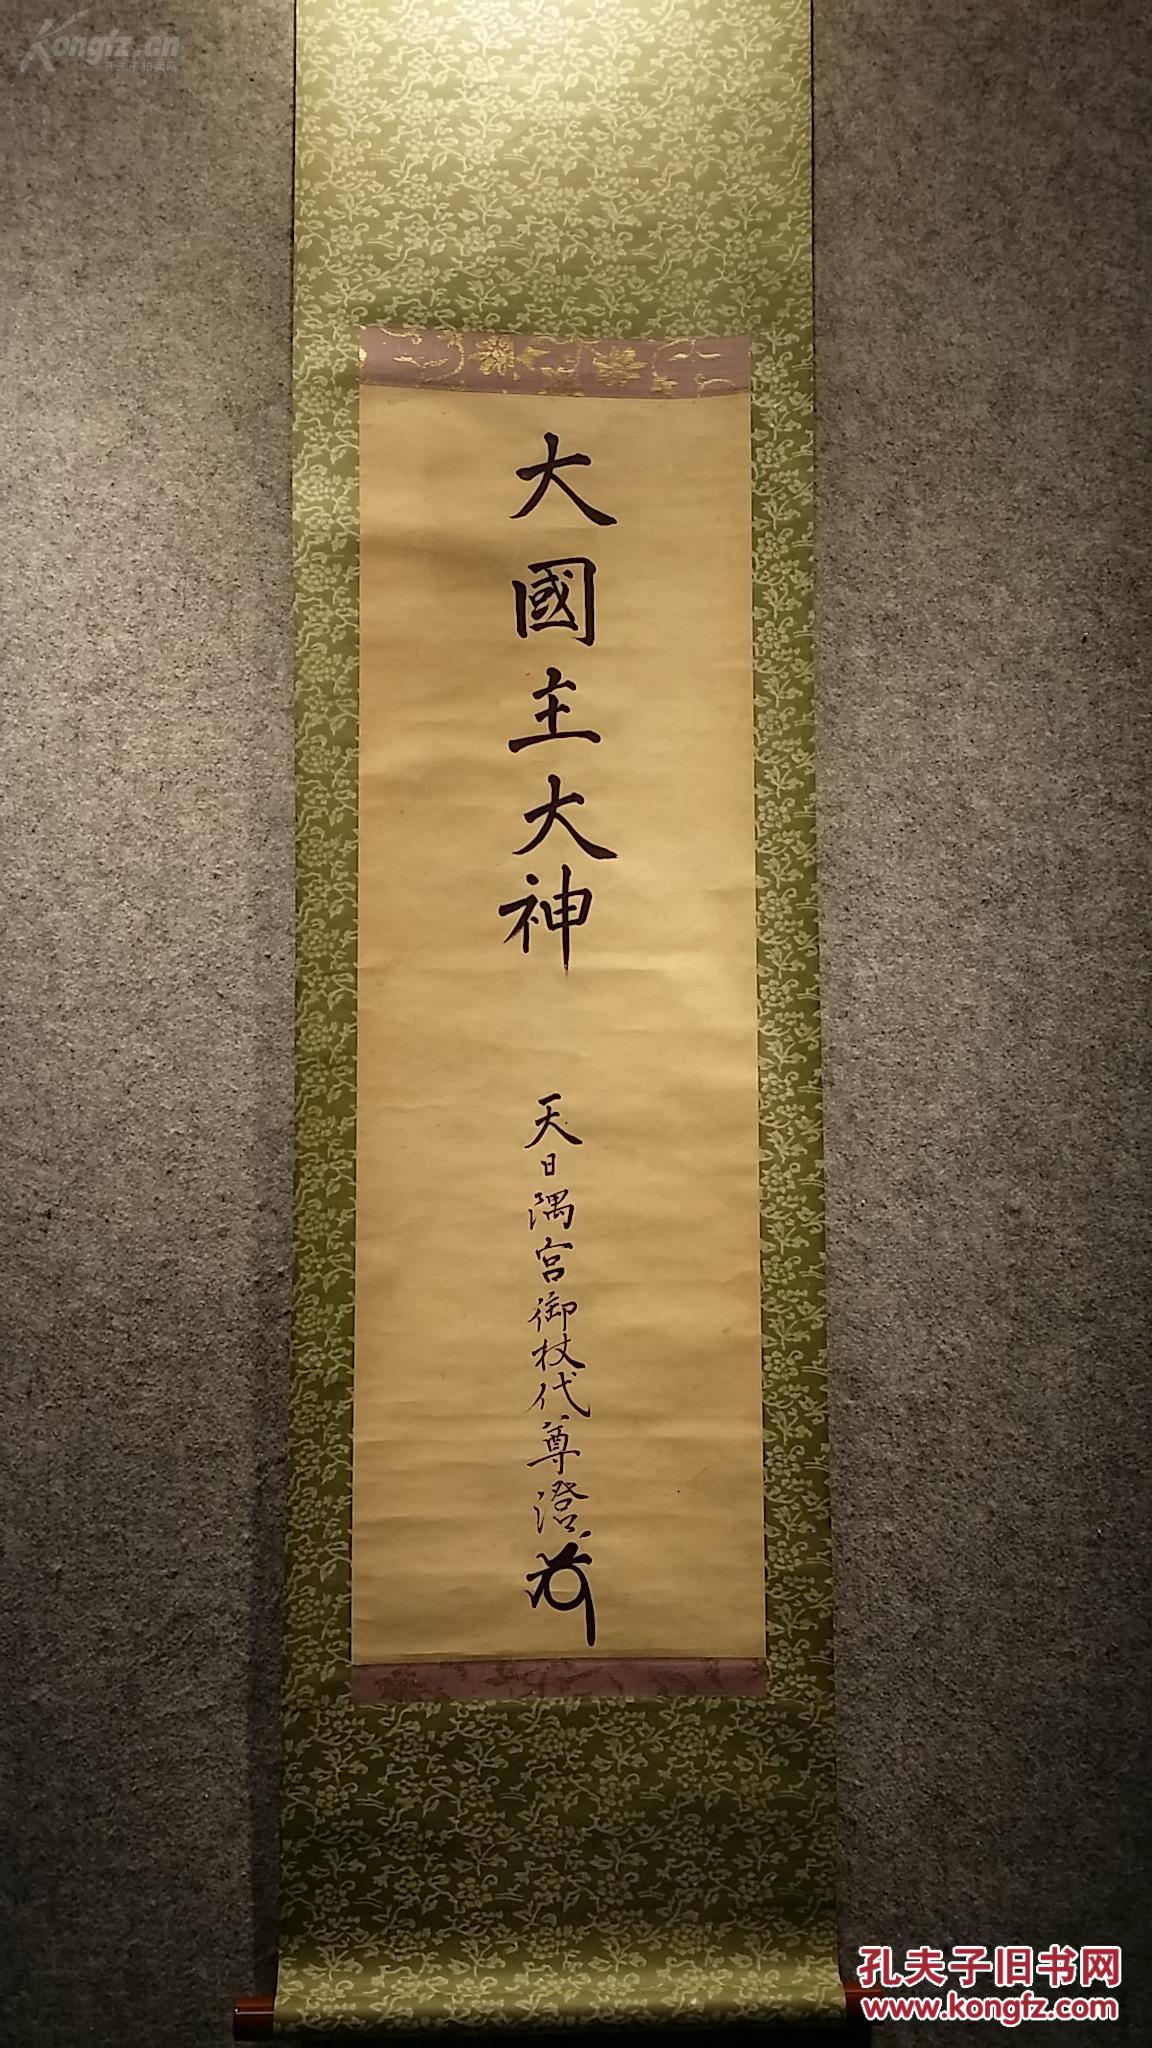 Kongfz.cn
孔夫子拍卖网
大國主大神
天日隅宮御杖代尊澄
孔夫子旧书网
www.kongfz.com